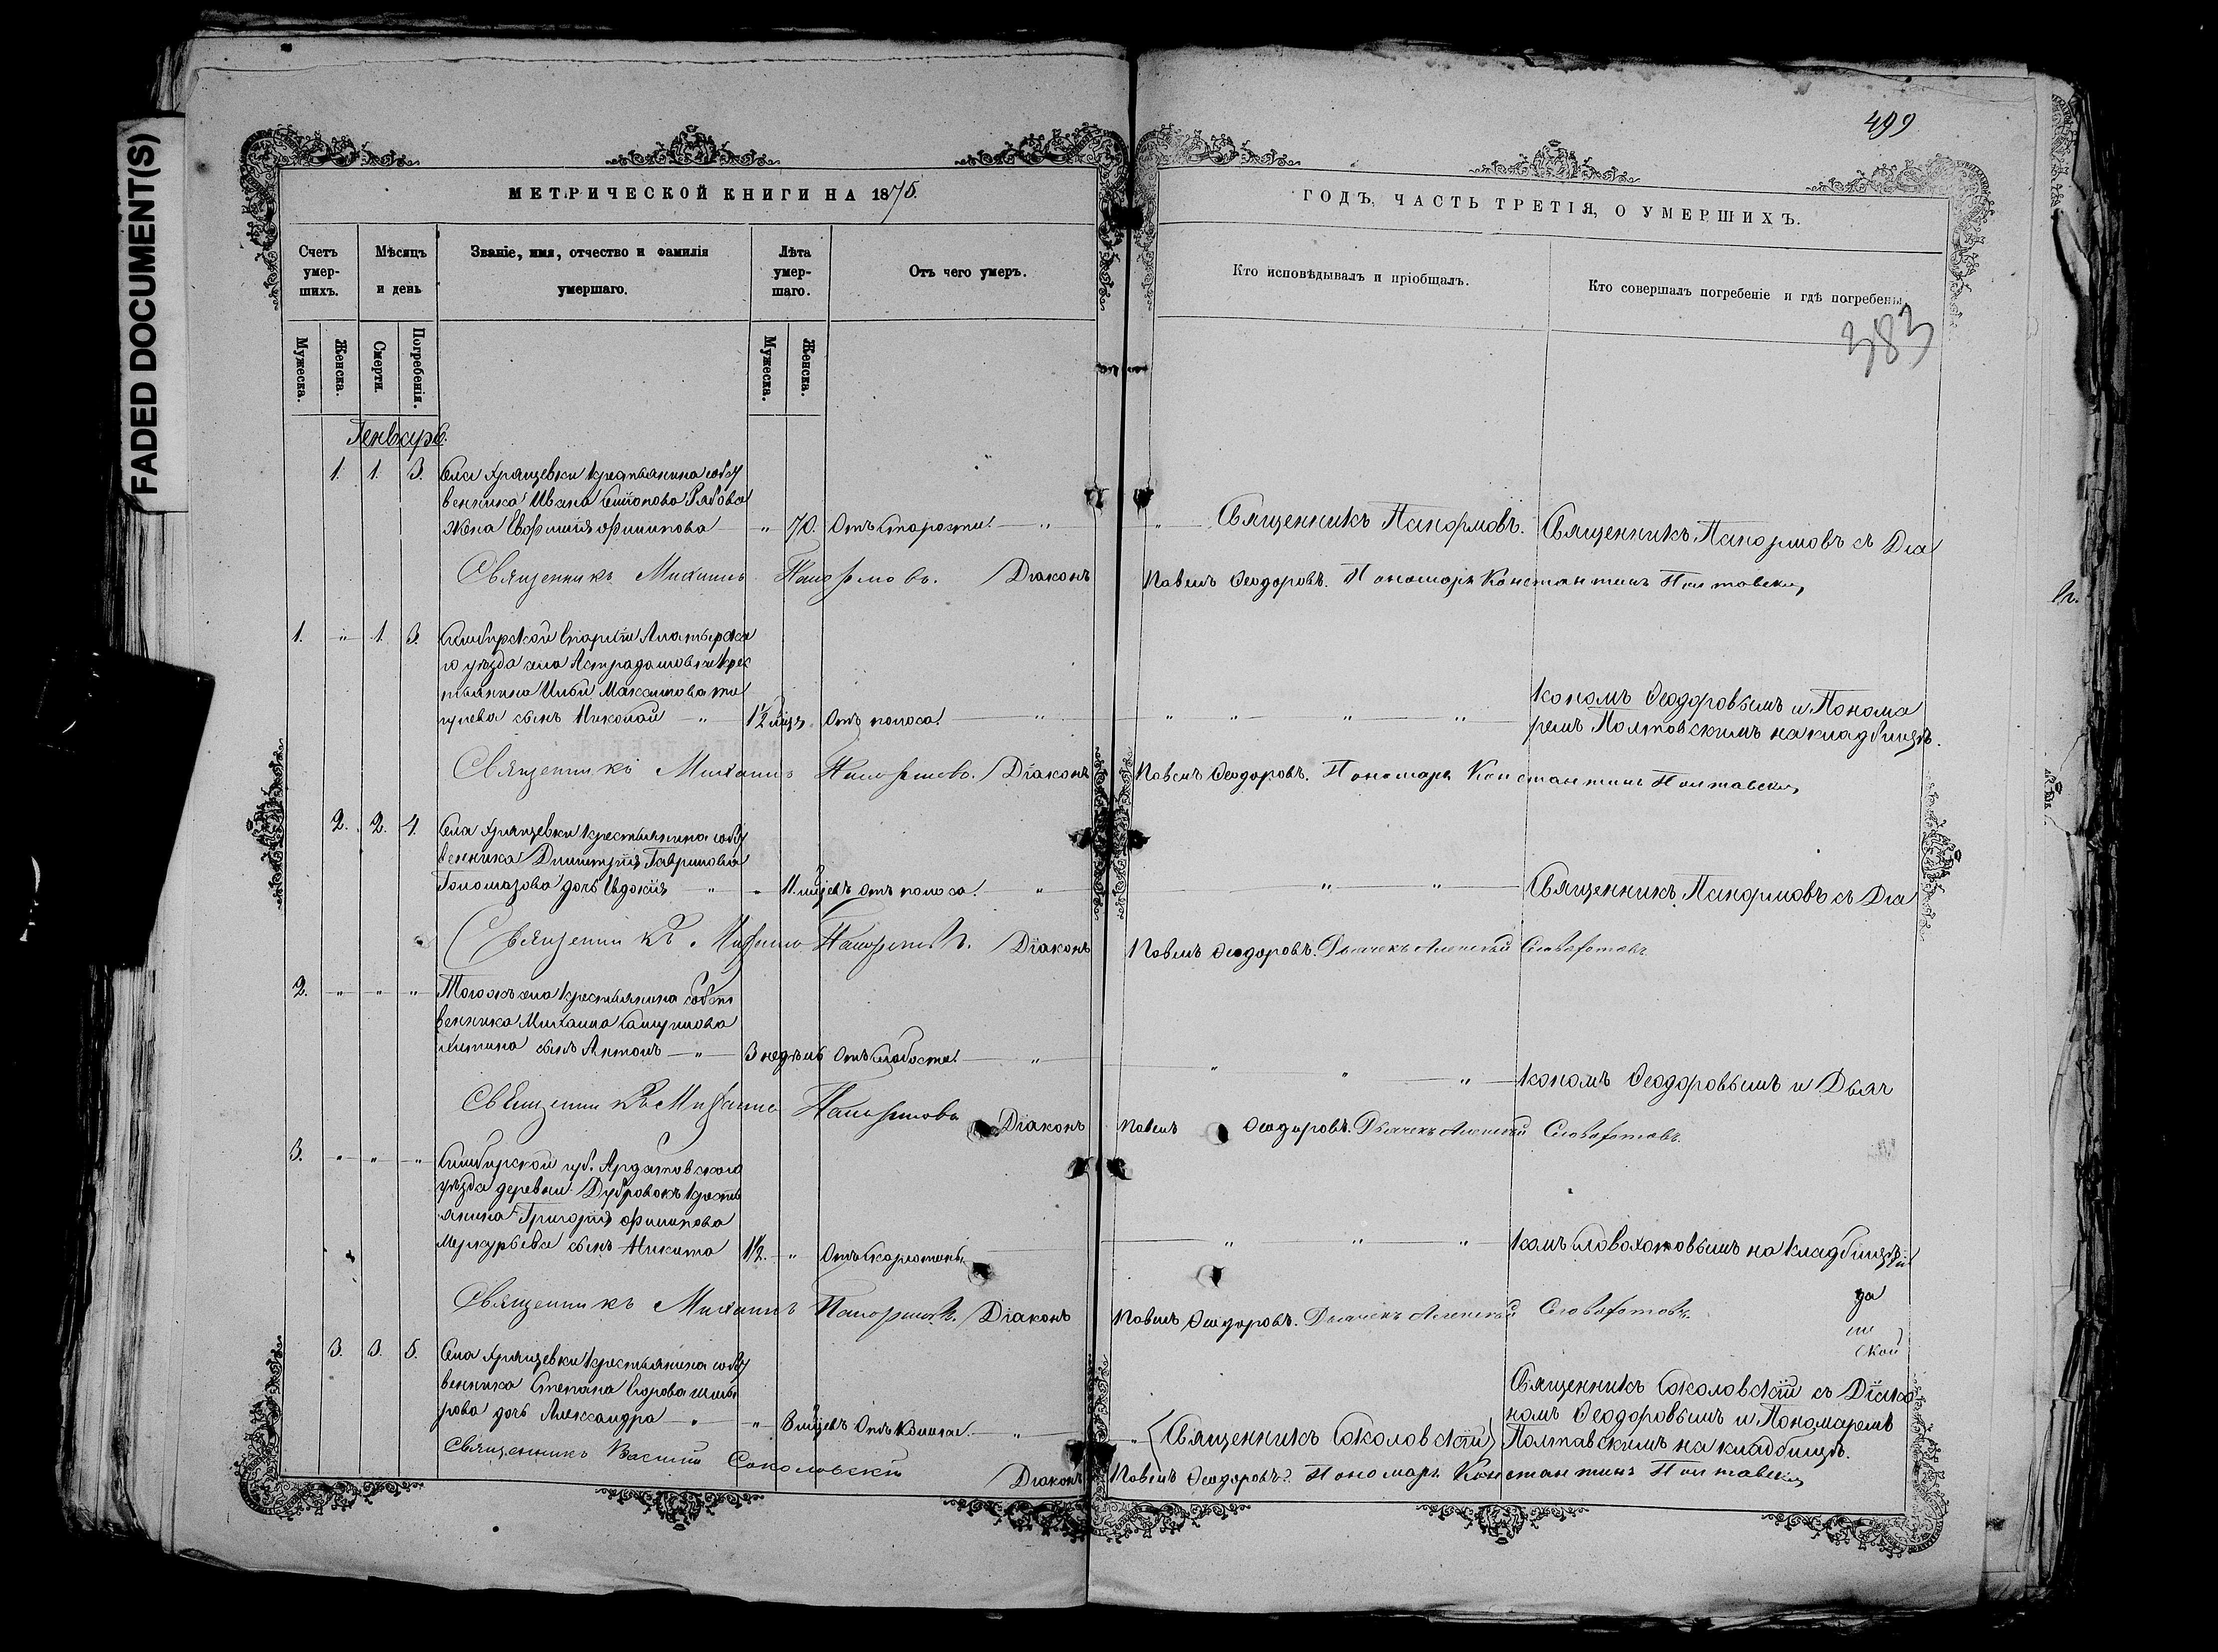 FADED DOCUMENT(S)
499
МЕТРИЧЕСКОЙ КНИГИ НА 1875.
ГОДЪ, ЧАСТЬ ТРЕТІЯ, О УМЕРШИХЪ.
Счетъ умер-шихъ.
Мѣсяцъ и день
Званіе, имя, отчество и фамилія умершаго.
Лѣта умер-шаго.
Отъ чего умеръ.
Кто исповѣдывалъ и пріобщалъ.
Кто совершалъ погребеніе и гдѣ погребены.
383
Мужеска.
Женска.
Смерти.
Погребенія.
Мужеска.
Женска.
Генварь.
1. 1. 3. Села Хрящевки крестьянина собст
венника Ивана Рябова
жена Евфимія Филипова " 70. Отъ старости. " " Священникъ Панормовъ. Священникъ Панормовъ съ Діа
Священникъ Михаилъ Панормовъ. Діаконъ Павелъ Ѳеодоровъ. Пономарь Константинъ Полтавскій
1. " 1. 3. Симбирской Епархіи Алатырска
го уѣзда села Астрадамовки крес
тьянина Ильи Максимова
сынъ Николай " 1½ мѣц. Отъ поноса. " " " " "
кономъ Ѳеодоровымъ и Понома
ремъ Полтовскимъ на кладбищѣ.
Священникъ Михаилъ Панормовъ. Діаконъ Павелъ Ѳеодоровъ. Пономарь Константинъ Полтавскій
2. 2. 4. Села Хрящевки крестьянина собст
венника Димитрія Гаврилова
дочь Евдокія " " 11. мѣцевъ Отъ поноса. " " " Священникъ Панормовъ съ Діа
Священникъ Михаилъ Панормовъ. Діаконъ Павелъ Ѳеодоровъ. Дьячекъ Алексѣй Словохотовъ
2. " " " Тогожъ села крестьянина собст
венника Михаила
сынъ Антонъ " 3 недѣль Отъ слабости. " " " " кономъ Ѳеодоровымъ и Дьяч
Священникъ Михаилъ Панормовъ Діаконъ Павелъ Ѳеодоровъ. Дьячекъ Алексѣй Словохотовъ.
3. " " " Симбирской губ. Ардатовскаго
уѣзда деревни Дубровокъ кресть
янина Григорія Филипова
Меркурьева сынъ Никита 1½. " Отъ скарлатины " " " комъ Словохотовымъ на кладбищѣ.
Священникъ Михаилъ Панормовъ. Діаконъ Павелъ Ѳеодоровъ. Дьячекъ Алексѣй Словохотовъ.
да
ской
3. 3. 5. Села Хрящевки крестьянина собст
венника Степана Егорова
дочь Александра " " 8 мѣцевъ Отъ кашля. " " Священникъ Соколовскій
Священникъ Соколовскій съ Діако
номъ Ѳеодоровымъ и Пономаремъ
Полтавскимъ на кладбищѣ.
Священникъ Василій Соколовскій Діаконъ Павелъ Ѳеодоровъ. Пономарь Константинъ Полтавскій